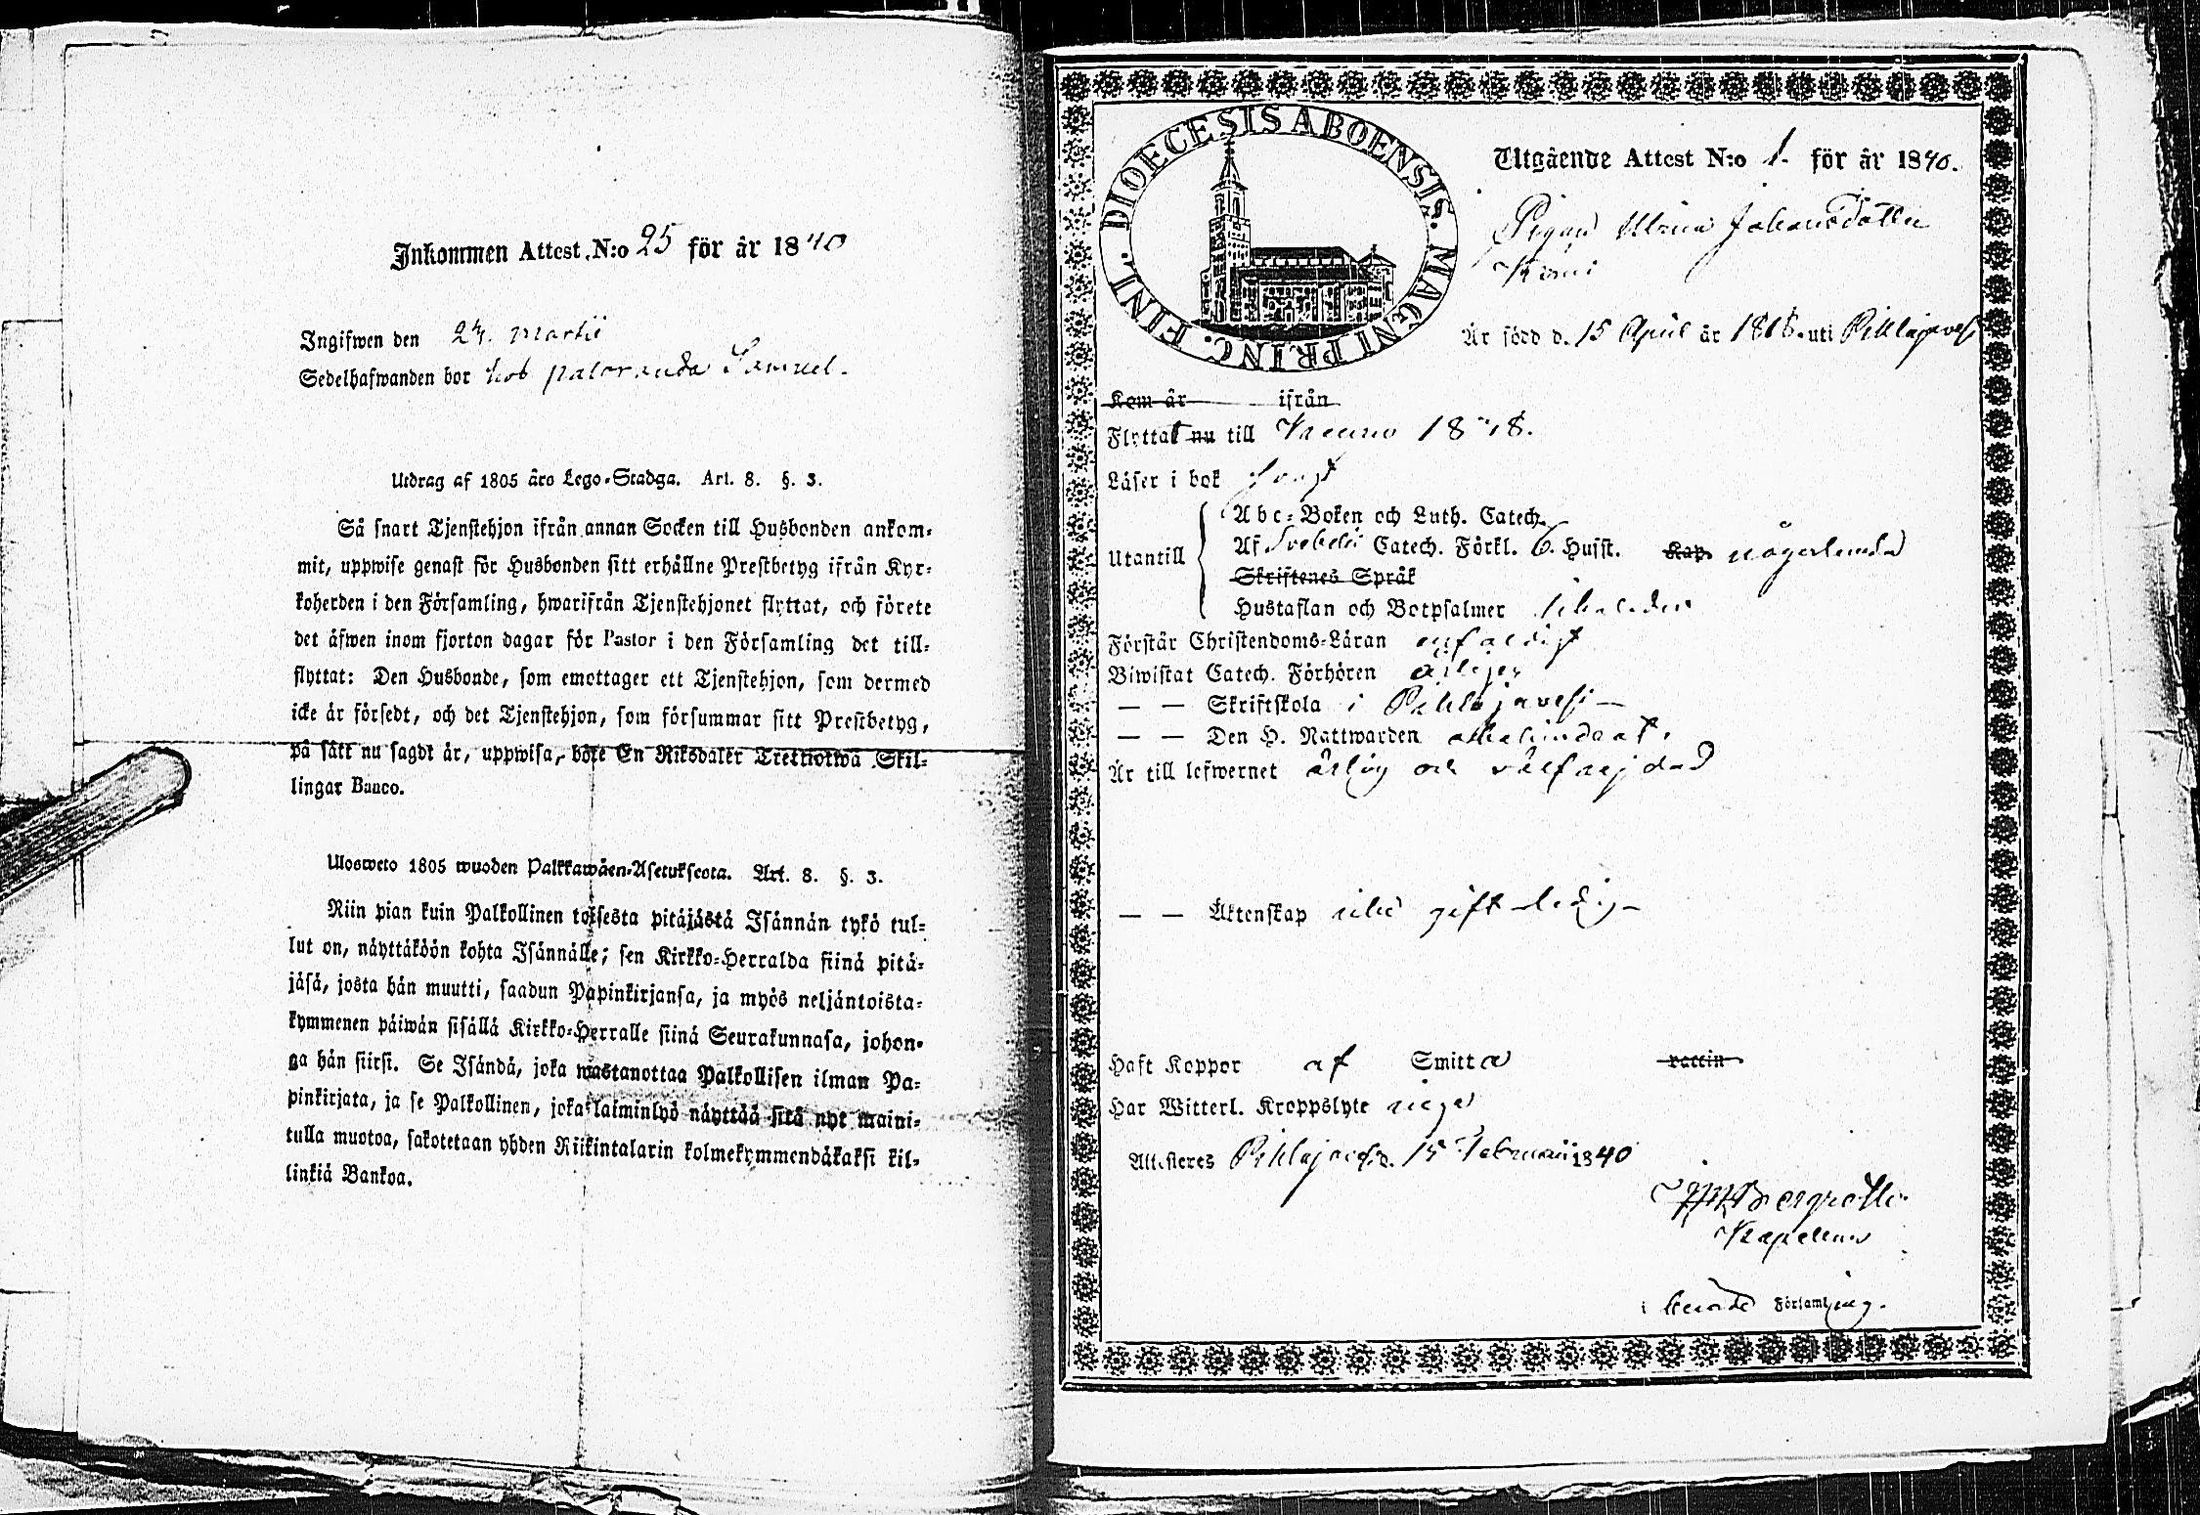 Inkommen Attest N:o 25 för år 1840
Ingifwen den 24. Martii
Sedelhafwanden bor hos Paloranda Samuel.
Utdrag af 1805 års Lego-Stadga. Art. 8. §. 3.
Så snart Tjenstehjon ifrån annan Socken till Husbonden ankom-
mit, uppwise genast för Husbonden sitt erhållne Prestbetyg ifrån Kyr-
koherden i den Församling, hwarifrån Tjenstehjonet flyttat, och förete
det äfwen inom fjorton dagar för Pastor i den Församling det till-
flyttat: Den Husbonde, som emottager ett Tjenstehjon, som dermed
icke är försedt, och det Tjenstehjon, som försummar sitt Prestbetyg,
på sätt nu sagdt är, uppwisa, böte En Riksdaler Trettiotwå Skil-
lingar Banco.
Ulosweto 1805 wuoden Palkkawäen-Asetuksesta. Art. 8. §. 3.
Niin pian kuin Palkollinen toisesta pitäjästä Isännän tykö tul-
lut on, näyttäköön kohta Isännälle; sen Kirkko-Herralda siinä pitä-
jäsä, josta hän muutti, saadun Papinkirjansa, ja myös neljäntoista-
kymmenen päiwän sisällä Kirkko-Herralle siinä Seurakunnasa, johon-
ga hän siirsi. Se Isändä, joka wastanottaa Palkollisen ilman Pa-
pinkirjata, ja se Palkollinen, joka laiminlyö näyttää sitä nyt maini-
tulla muotoa, sakotetaan yhden Riikintalarin kolmekymmendäkaksi kil-
linkiä Bankoa.
DIOECESIS ABOENSIS. MAGNI PRINC. FINL.
Utgående Attest N:o 1. för år 1840.
Pigan Ulrica Johansdotter
Är född d. 15 April år 1818 uti Pihlajavesi
Kom år ifrån
Flyttat nu till Keuru 1838.
Läser i bok
Utantill
Abc-Boken och Luth. Catech.
Af Svebelii Catech. Förkl. 6. Husst. Kap. någorlunda
Skriftenes Språk
Hustaflan och Botpsalmer
Förstår Christendoms-Läran enfaldigt
Biwistat Catech. Förhören årligen
— — Skriftskola i Pihlajavesi —
— — Den H. Nattwarden
Är till lefwernet ärlig och välfrejdad
— — Äktenskap icke gift ledig —
Haft Koppor af Smitta vaccin
Har Witterl. Kroppslyte inga
Attesteres Pihlajavesi d. 15 Februarii 1840
Bergroth
Kapellan
i berörde Församling.